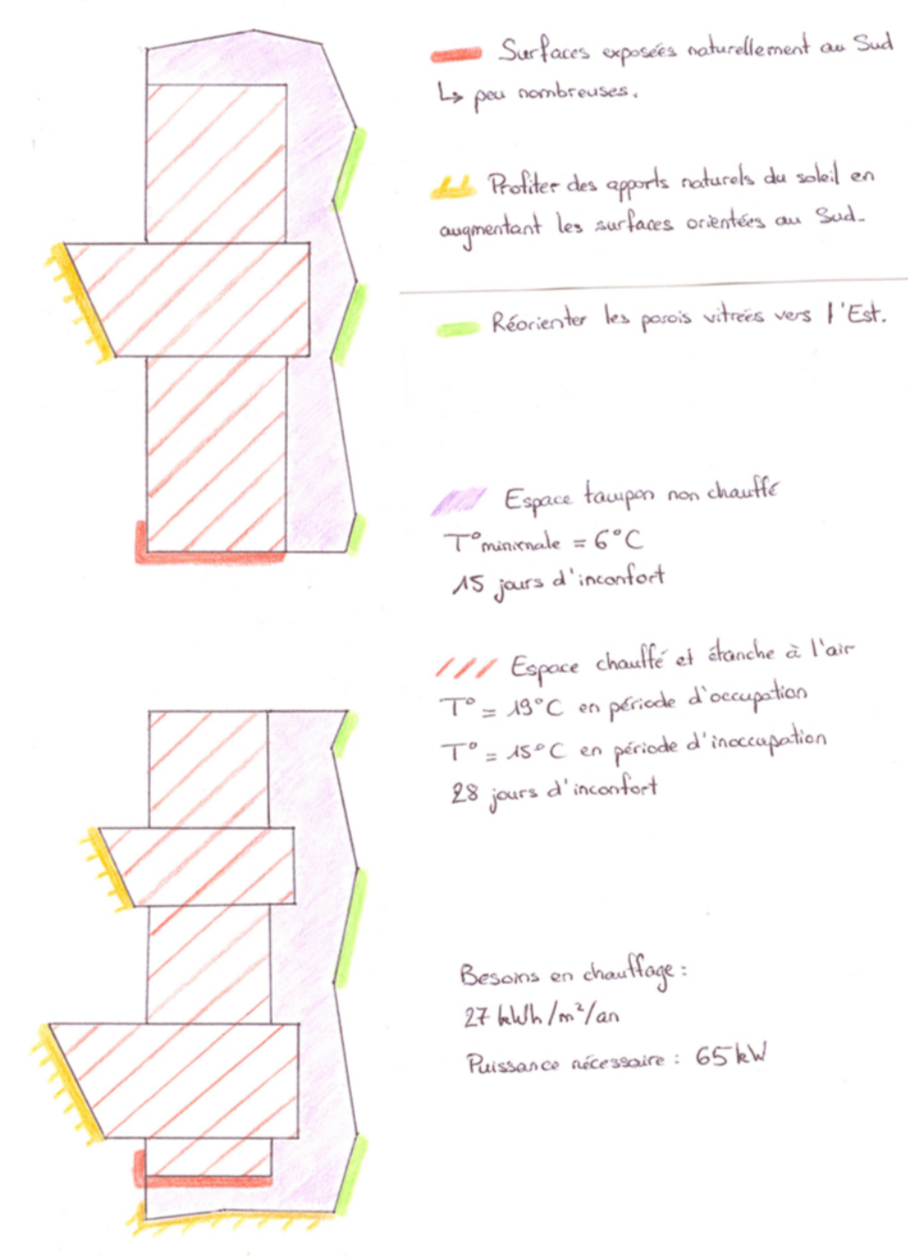 Surfaces exposées naturellement au Sud
↳ peu nombreuses.
Profiter des apports naturels du soleil en
augmentant les surfaces orientées au Sud.
Réorienter les parois vitrées vers l'Est.
Espace tampon non chauffé
T° minimale = 6°C
15 jours d'inconfort
Espace chauffé et étanche à l'air
T° = 19°C en période d'occupation
T° = 15°C en période d'inoccupation
28 jours d'inconfort
Besoins en chauffage :
27 kWh/m²/an
Puissance nécessaire : 65 kW